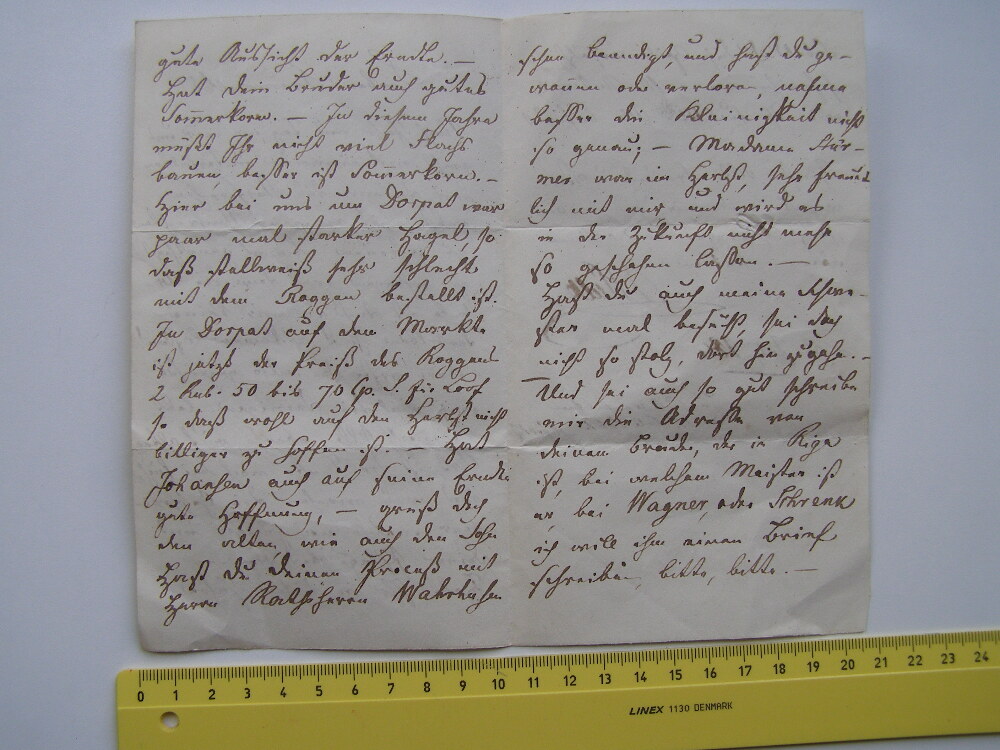 gute Aussicht der Erndte. —
Hat dein Bruder auch gutes
Som̄erkorn. — In diesem Jahre
müßt Ihr nicht viel Flachs
bauen, besser ist Som̄erkorn. —
Hier bei uns um Dorpat war
paar mal starker Hagel, so
daß stellweiß sehr schlecht
mit dem Roggen bestellt ist.
In Dorpat auf dem Markte
ist jetzt der Preiß des Roggens
2 Rub. 50 bis 70 Cp. S. für Loof
so daß wohl auf den Herbst nicht
billiger zu hoffen ist. — Hat
Johansen auch auf seine Erndte
gute Hoffnung, — grüß doch
den alten, wie auch den Sohn
Hast du deinen Proceß mit
Herrn Rathsherrn
schon beendigt, und hast du ge-
wonnen oder verloren, nehme
besser die Kleinigkeit nicht
so genau; — Madame Stür-
mer war im Herbst, sehr freund
lich mit mir und wird es
in der Zukunft nicht mehr
so geschehen lassen. —
Hast du auch meine Schwe-
ster mal besucht, sei doch
nicht so stolz, dort hin zugehn. —
Und sei auch so gut schreibe
mir die Adresse von
deinen Bruder, der in Riga
ist, bei welchem Meister ist
er bei Wagner, oder Schrenk
ich will ihm einen Brief
schreiben, bitte, bitte. —
0 1 2 3 4 5 6 7 8 9 10 11 12 13 14 15 16 17 18 19 20 21 22 23 24
LINEX 1130 DENMARK